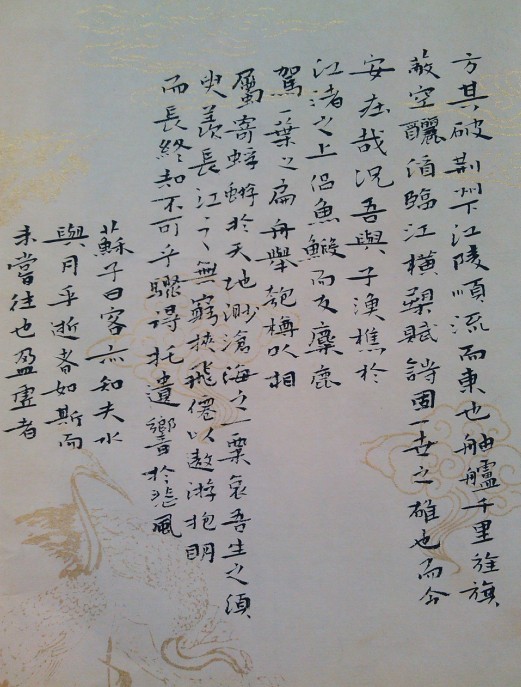 方其破荆州下江陵順流而東也舳艫千里旌旗
蔽空釃酒臨江横槊賦詩固一世之雄也而今
安在哉况吾與子漁樵於
江渚之上侣魚鰕而友麋鹿
駕一葉之扁舟舉匏樽以相
屬寄蜉蝣於天地渺滄海之一粟哀吾生之須
臾羨長江之無窮挾飛僊以遨游抱明
而長終知不可乎驟得托遺響於悲風
蘇子曰客亦知夫水
與月乎逝者如斯而
未嘗往也盈虚者